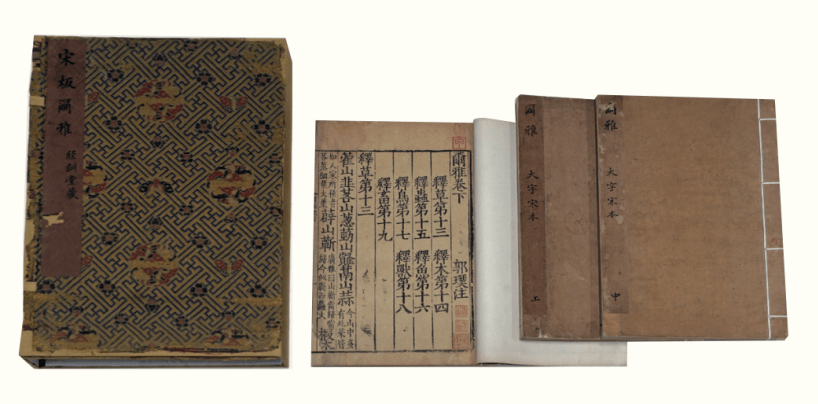 宋板爾雅
經訓堂藏
爾雅卷下 郭璞注
釋草第十三 釋木第十四
釋蟲第十五 釋魚第十六
釋鳥第十七 釋獸第十八
釋畜第十九
釋草第十三
藿山韭茖山葱葝山䪥蒚山蒜
薜山蘄
爾雅
大字宋本
上
爾雅
大字宋本
中